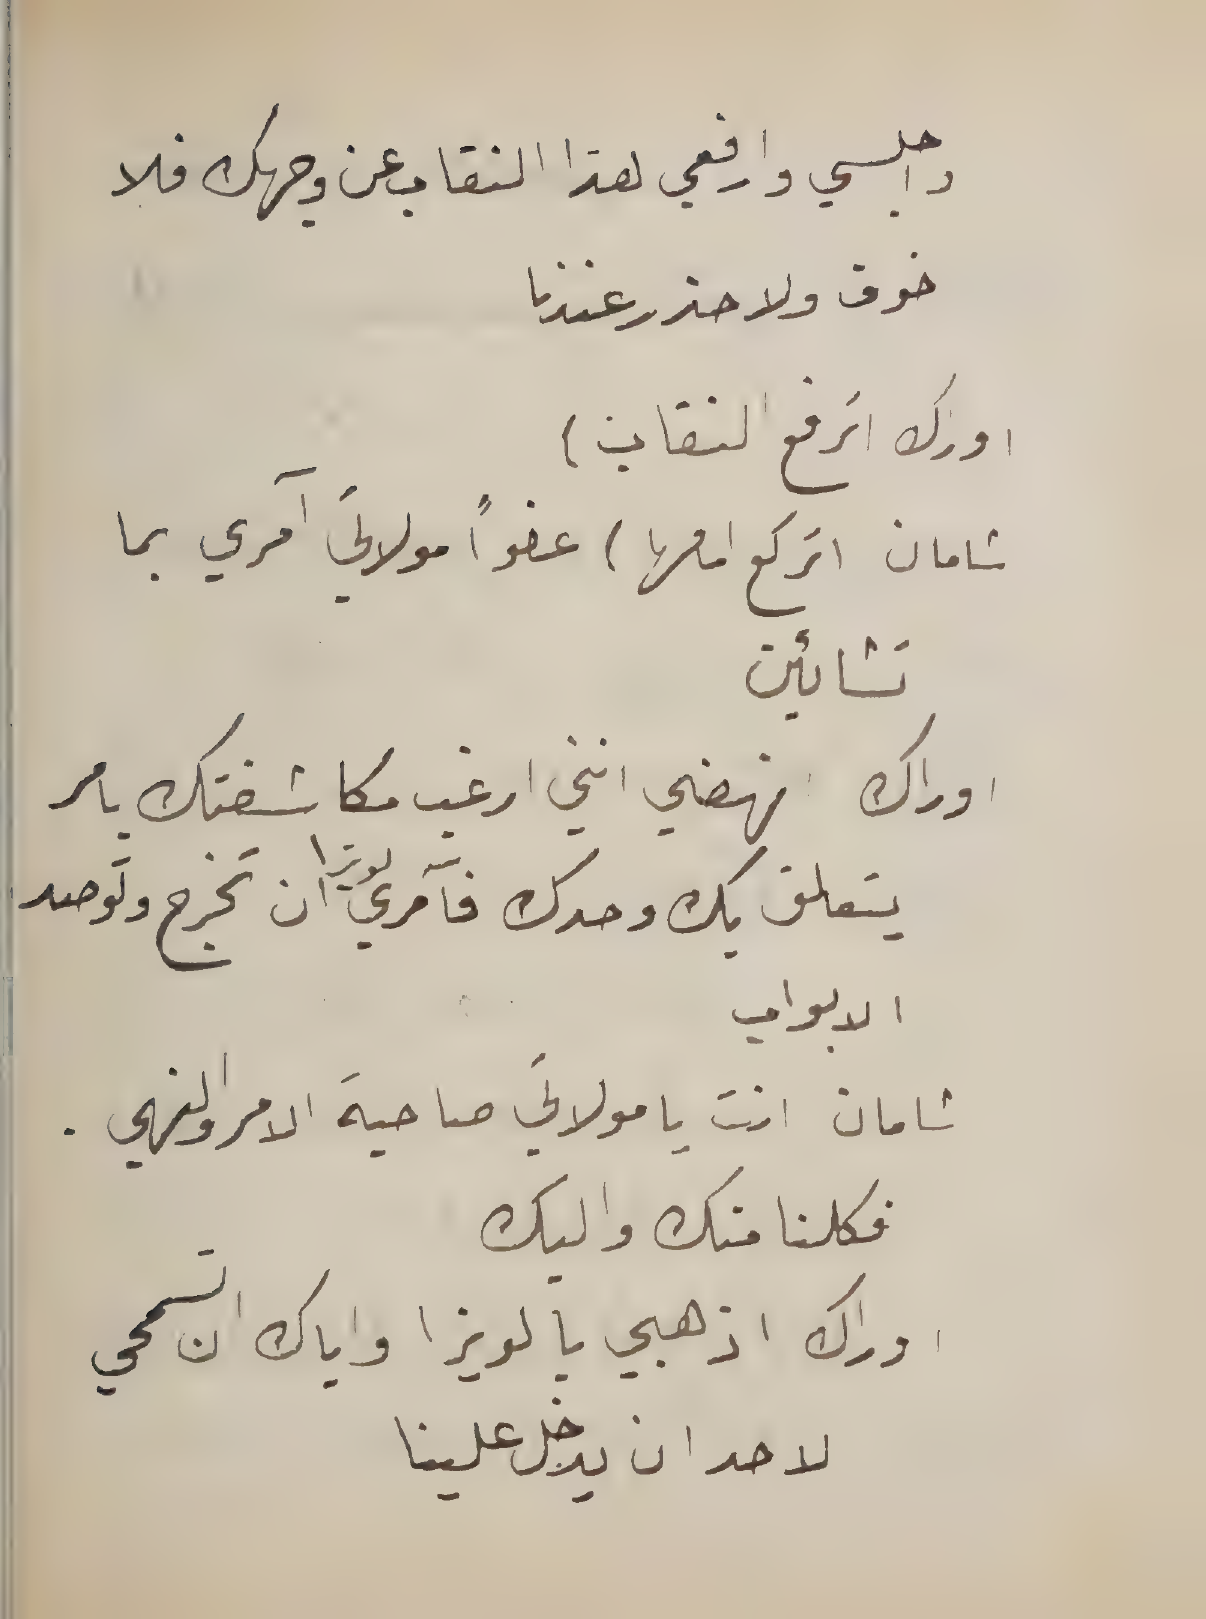 واجلسي وارفعي هذا النقاب عن وجهك فلا
خوف ولا حذر عندنا
اوراك (ترفع النقاب)
شامان (تركع امامها) عفواً مولاتي آمري بما
تشائين
اوراك انهضي انني ارغب مكاشفتك بامر
يتعلق بك وحدك فآمري لويزا ان تخرج وتوصد
الابواب
شامان انت يا مولاتي صاحبة الامر والنهي .
فكلنا منك واليك
اوراك اذهبي يا لويزا واياك ان تسمحي
لاحد ان يدخل علينا